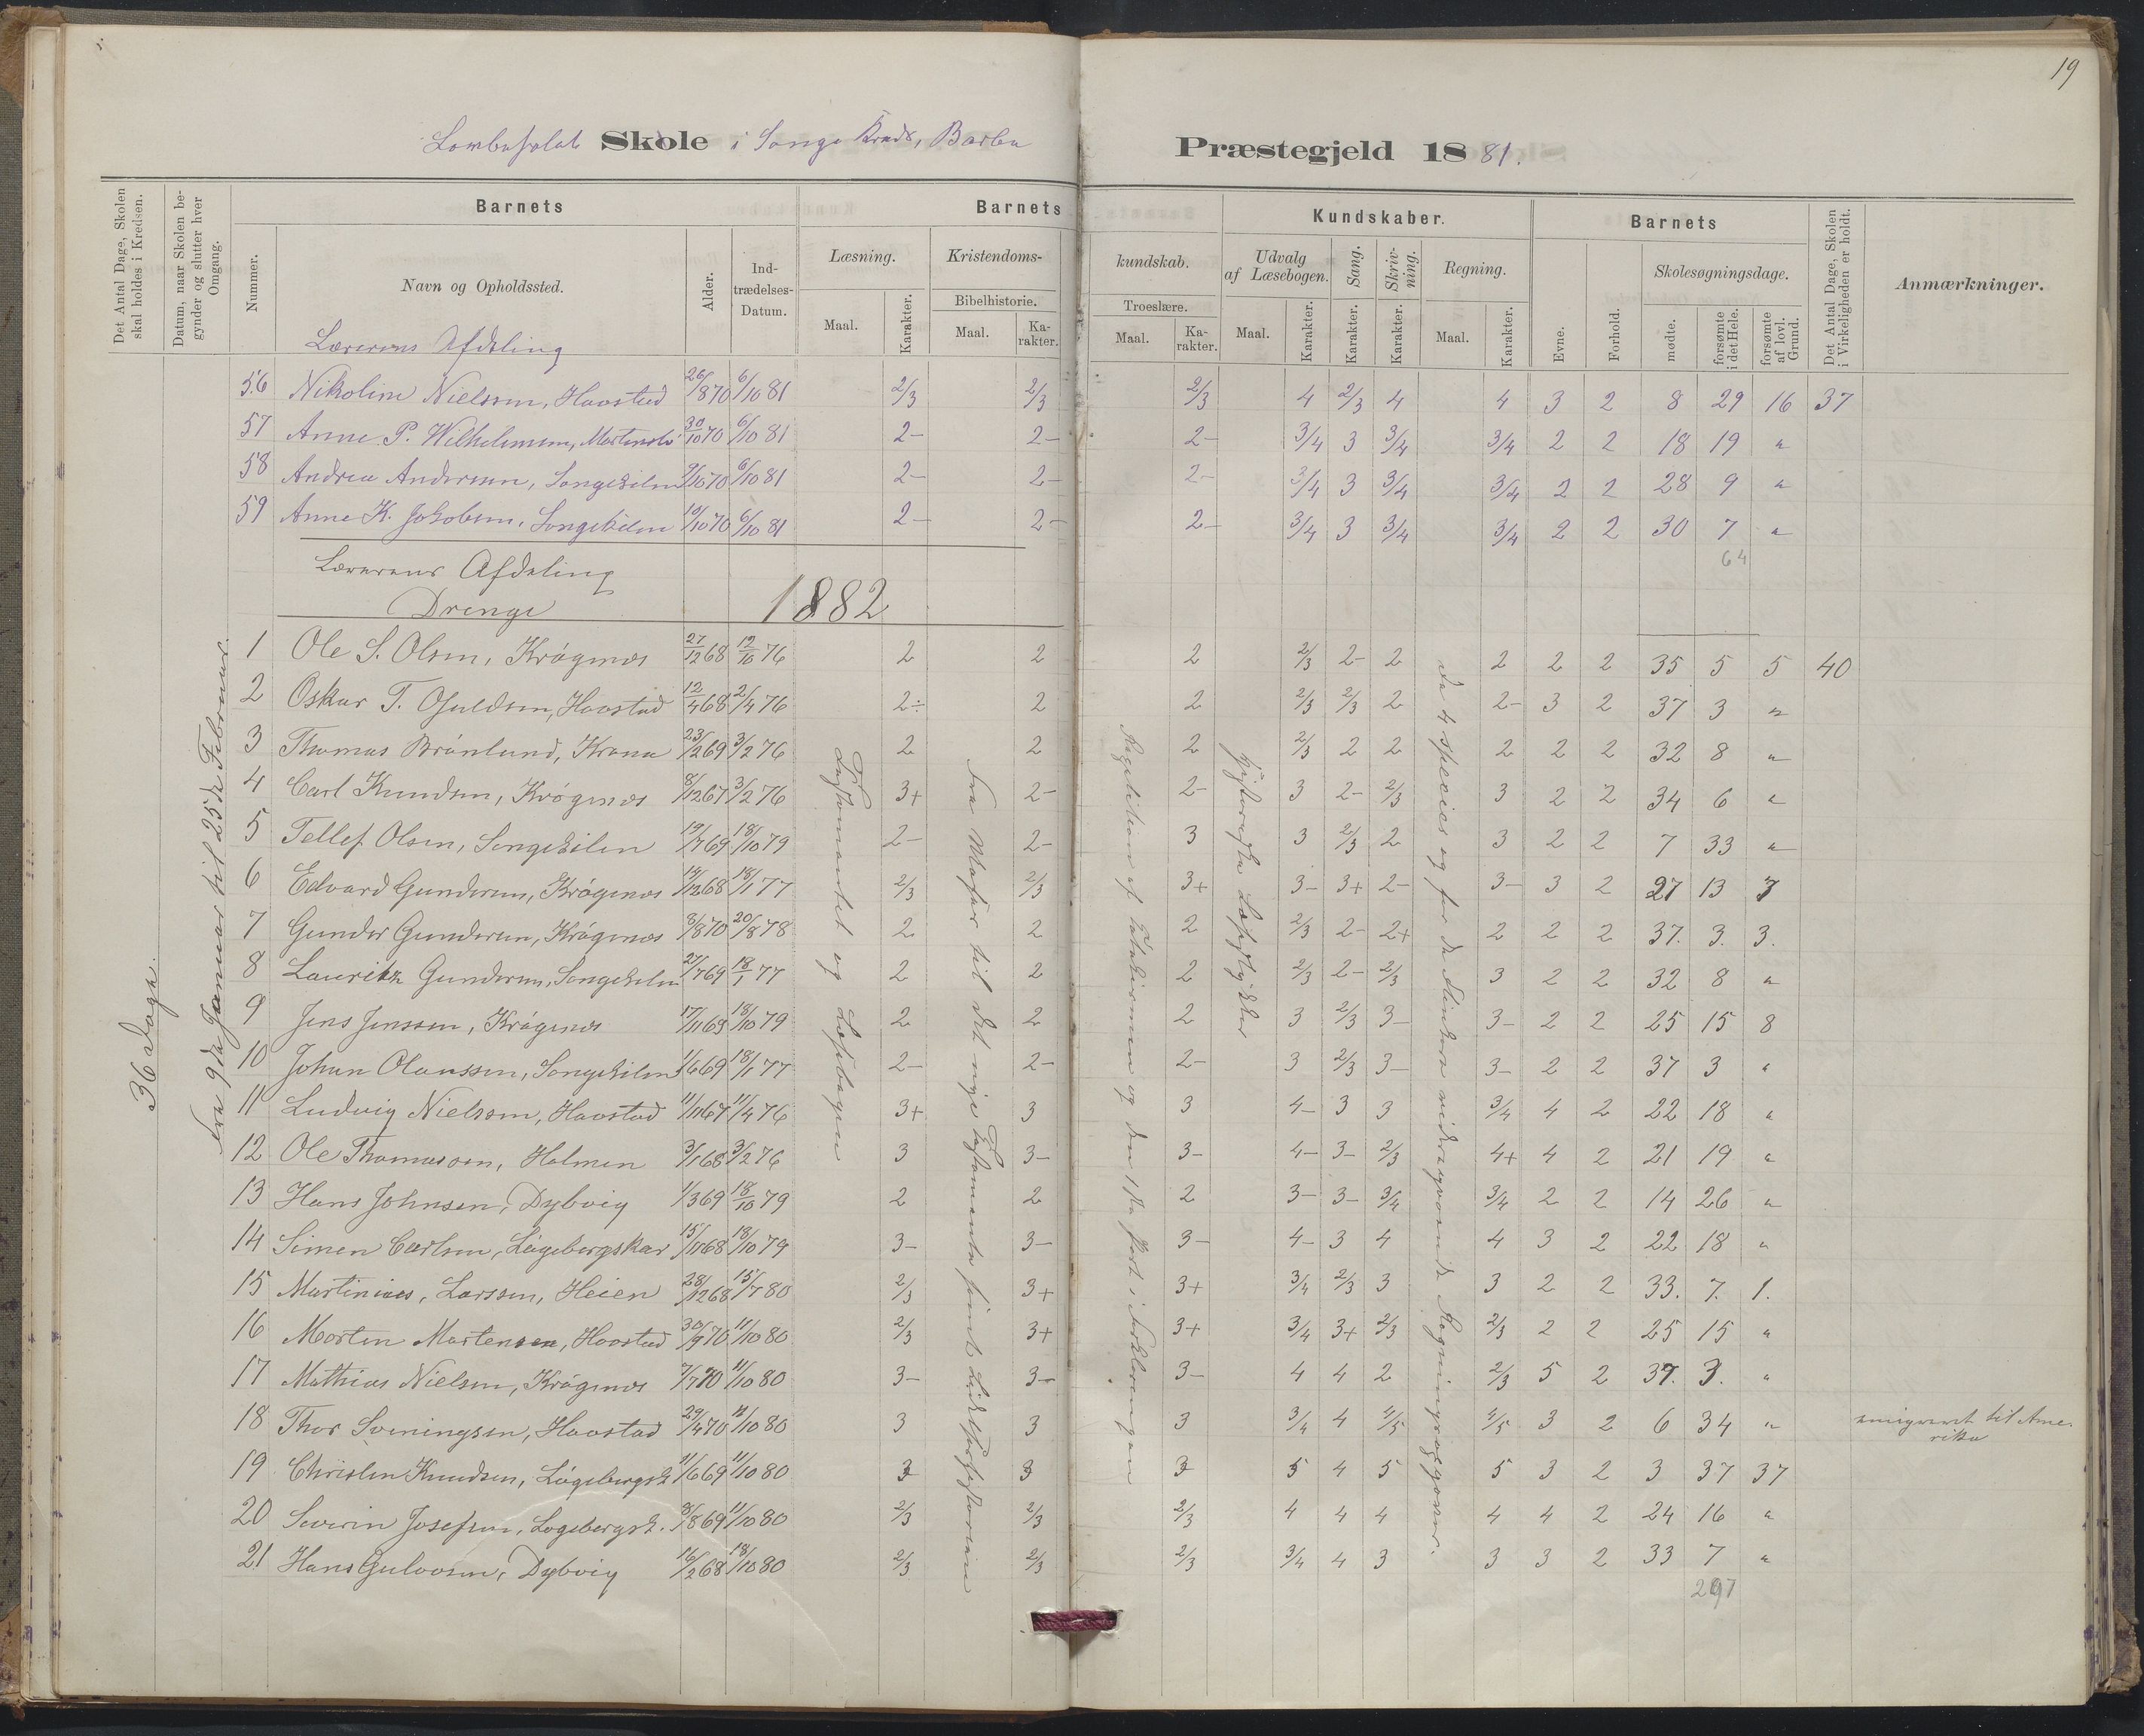 19
Skole i Songe Kreds, Barbu Præstegjeld 1881.
Det Antal Dage, Skolen skal holdes i Kredsen.
Datum, naar Skolen begynder og slutter hver Omgang.
Barnets
Nummer.
Navn og Opholdssted.
Alder.
Ind-trædelses-Datum.
Barnets Kundskaber.
Læsning.
Maal.
Karakter.
Kristendoms-kundskab.
Bibelhistorie.
Maal.
Ka-rakter.
Troeslære.
Maal.
Ka-rakter.
Udvalg af Læsebogen.
Maal.
Karakter.
Sang.
Karakter.
Skriv-ning.
Karakter.
Regning.
Maal.
Karakter.
Barnets
Evne.
Forhold.
Skolesøgningsdage.
mødte.
forsømte i det Hele.
forsømte af lovl. Grund.
Det Antal Dage, Skolen i Virkeligheden er holdt.
Anmærkninger.
Lærerens Afdeling
56 Nikoline Nielsen, Havstad 26/8 70 6/10 81 2/3 2/3 2/3 4 2/3 4 4 3 2 8 29 16 37
57 Anne P. Wilhelmsen, 30/10 70 6/10 81 2- 2- 2- 3/4 3 3/4 3/4 2 2 18 19 "
58 Andrea Andersen, Songekilen 9/10 70 6/10 81 2- 2- 2- 3/4 3 3/4 3/4 2 2 28 9 "
59 Anne K. Jakobsen, Songekilen 10/10 70 6/10 81 2- 2- 2- 3/4 3 3/4 3/4 2 2 30 7 "
64
Lærerens Afdeling
Drenge 1882
36 Dage.
Fra 9de Januar til 25de Februar.
Testamentet og Læsebogen
Fra Mosfør til det nye Testamente samt Lidelseshistorien
Repetition af Katekismen og den 1ste Part i Forklaringen
Historiske Læsestykker
de 4 Species og for de flinkere vedkommende Regningsopgaver.
1 Ole S. Olsen, Krøgenes 27/12 68 12/10 76 2 2 2 2/3 2- 2 2 2 2 35 5 5 40
2 Oskar T. Gjuldsen, Havstad 12/4 68 2/4 76 2÷ 2 2 2/3 2/3 2 2- 3 2 37 3 "
3 Thomas Brønlund, Krana 23/2 69 3/2 76 2 2 2 2/3 2 2 2 2 2 32 8 "
4 Carl Knudsen, Krøgenes 8/12 67 3/2 76 3+ 2- 2- 3 2- 2/3 3 2 2 34 6 "
5 Tellef Olsen, Songekilen 19/7 69 18/10 79 2- 2- 3 3 2/3 2 3 2 2 7 33 "
6 Edvard Gundersen, Krøgenes 14/12 68 18/1 77 2/3 2/3 3+ 3- 3+ 2- 3- 3 2 27 13 7
7 Gunder Gundersen, Krøgenes 3/8 70 20/8 78 2 2 2 2/3 2- 2+ 2 2 2 37. 3. 3.
8 Lauritz Gundersen, Songekilen 21/7 69 18/1 77 2 2 2 2/3 2- 2/3 3 2 2 32 8 "
9 Jens Jenssen, Krøgenes 17/11 69 18/10 79 2 2 2 3 2/3 3- 3- 2 2 25 15 8
10 Johan Olaussen, Songekilen 1/6 69 18/1 77 2- 2- 2- 3 2/3 3- 3- 2 2 37 3 "
11 Ludvig Nielsen, Havstad 11/11 67 11/4 76 3+ 3 3 4- 3 3 3/4 4 2 22 18 "
12 Ole Thomassen, Holmen 3/1 68 3/2 76 3 3- 3- 4- 3- 2/3 4+ 4 2 21 19 "
13 Hans Johnsen, Dybvig 1/3 69 18/10 79 2 2 2 3- 3- 3/4 3/4 2 2 14 26 "
14 Simen Carlsen, Løgebergskar 15/11 68 18/10 79 3- 3- 3- 4- 3 4 4 3 2 22 18 "
15 Martinius Larssen, Heien 28/12 68 15/7 80 2/3 3+ 3+ 3/4 2/3 3 3 2 2 33. 7. 1.
16 Morten Mortensen, Havstad 30/9 70 11/10 80 2/3 3+ 3+ 3/4 3+ 2/3 2/3 2 2 25 15 "
17 Mathias Nielsen, Krøgenes 7/7 70 11/10 80 3- 3- 3- 4 4 2 2/3 5 2 37. 3. "
18 Thor Sveningsen, Havstad 29/4 70 11/10 80 3 3 3 3/4 4 4/5 4/5 3 2 6 34 " emigreret til Amerika
19 Christen Knudsen, Løgebergsk. 11/6 69 11/10 80 3 3 3 5 4 5 5 3 2 3 37 37
20 Severin Josefsen, Løgebergsk. 8/8 69 11/10 80 2/3 2/3 2/3 4 4 4 4 4 2 24 16 "
21 Hans Gulovsen, Dybvig 16/2 68 18/10 80 2/3 2/3 2/3 3/4 4 3 3 3 2 33 7 "
297